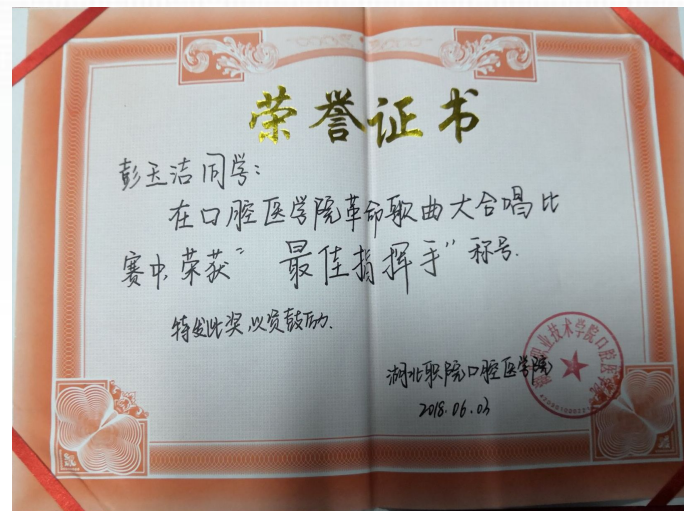 荣誉证书
彭玉洁同学：
在口腔医学院革命歌曲大合唱比
赛中荣获“最佳指挥手”称号.
特发此奖，以资鼓励.
湖北职院口腔医学院
2018.06.03
职业技术学院口腔医学